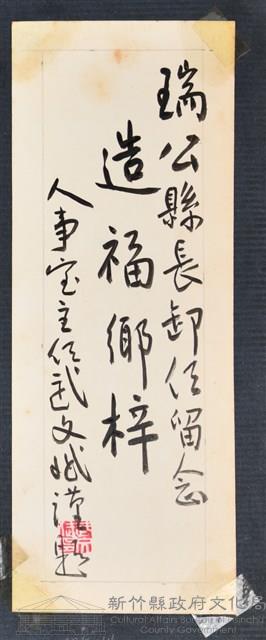 瑞公縣長卸任留念
造福鄉梓
人事室主任武文斌謹題
新竹縣政府文化局
Cultural Affairs Bureau of Hsinchu
County Government